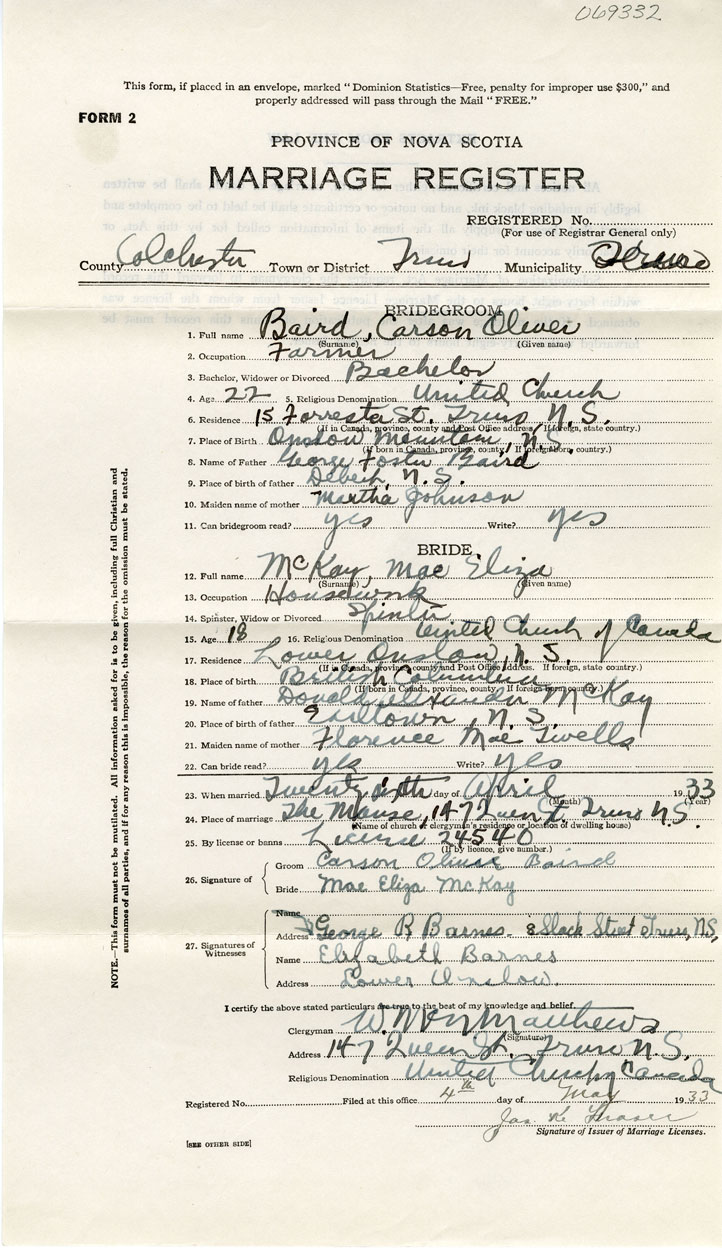 069332
This form, if placed in an envelope, marked "Dominion Statistics—Free, penalty for improper use $300," and
properly addressed will pass through the Mail "FREE."
FORM 2
PROVINCE OF NOVA SCOTIA
MARRIAGE REGISTER
REGISTERED No.
(For use of Registrar General only)
County Colchester Town or District Truro Municipality
BRIDEGROOM
1. Full name Baird, Carson Oliver
(Surname) (Given name)
2. Occupation Farmer
3. Bachelor, Widower or Divorced Bachelor
4. Age 22 5. Religious Denomination United Church
6. Residence 15 Forresta St. Truro, N.S.
(If in Canada, province, county and Post Office address. If foreign, state country.)
7. Place of Birth Onslow Mountain, N.S.
(If born in Canada, province, county. If foreign born, country.)
8. Name of Father George Foster Baird
9. Place of birth of father Debert, N.S.
10. Maiden name of mother Martha Johnson
11. Can bridegroom read? yes Write? yes
BRIDE
12. Full name McKay, Mae Eliza
(Surname) (Given name)
13. Occupation Housework
14. Spinster, Widow or Divorced Spinster
15. Age 18 16. Religious Denomination United Church of Canada
17. Residence Lower Onslow, N.S.
(If in Canada, province, county and Post Office address. If foreign, state country.)
18. Place of birth British Columbia
(If born in Canada, province, county. If foreign born, country.)
19. Name of father Donald Alexander McKay
20. Place of birth of father Earltown, N.S.
21. Maiden name of mother Florence Mae Twells
22. Can bride read? yes Write? yes
23. When married Twenty sixth day of April 1933
(Month) (Year)
24. Place of marriage The Manse, 147 Queen St. Truro N.S.
(Name of church or clergyman's residence or location of dwelling house)
25. By license or banns License 24540
(If by licence, give number.)
26. Signature of
Groom Carson Oliver Baird
Bride Mae Eliza McKay
27. Signatures of Witnesses
Name
Address George R Barnes - 8 Slack Street Truro, N.S,
Name Elizabeth Barnes
Address Lower Onslow.
I certify the above stated particulars are true to the best of my knowledge and belief.
Clergyman Matthews
(Signature)
Address 147 Queen St. Truro N.S.
Religious Denomination United Church of Canada
Registered No. Filed at this office 4th day of May 1933
Jas. K. Fraser
Signature of Issuer of Marriage Licenses.
[SEE OTHER SIDE]
NOTE.—This form must not be mutilated. All information asked for is to be given, including full Christian and
surnames of all parties, and if for any reason this is impossible, the reason for the omission must be stated.